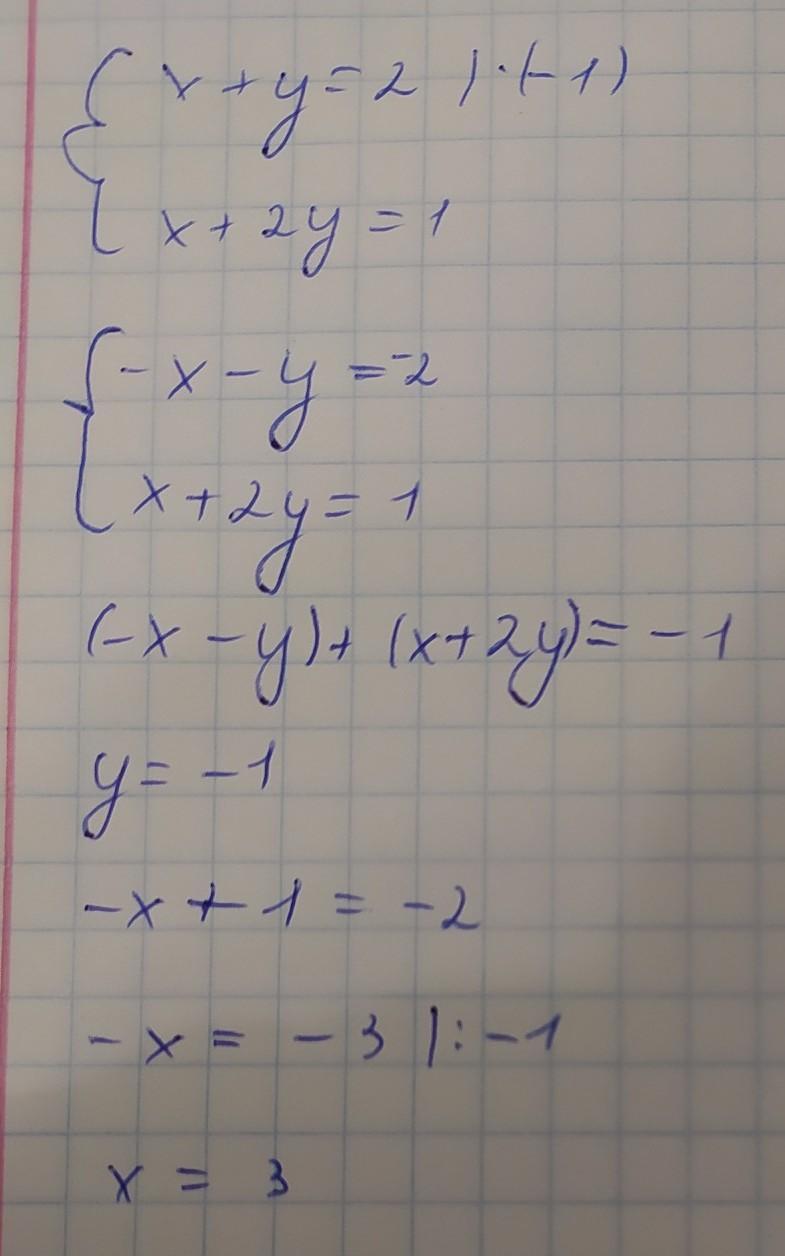 x + y = 2 | · (-1)
x + 2y = 1
-x - y = -2
x + 2y = 1
(-x - y) + (x + 2y) = -1
y = -1
-x + 1 = -2
-x = -3 | : -1
x = 3